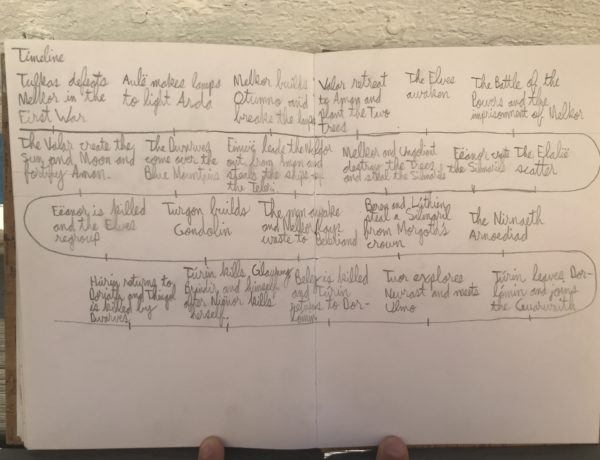 Timeline
Tulkas defeats
Melkor in the
First War
Aulë makes lamps
to light Arda
Melkor builds
Utumno and
breaks the lamps
Valar retreat
to Aman and
plant the Two
Trees
The Elves
awaken
The Battle of the
Powers and the
imprisonment of Melkor
The Valar create the
Sun and Moon and
fortify Aman.
The Dwarves
come over the
Blue Mountains
lead the Noldor
out from Aman and
steals the ships of
the Teleri
Melkor and Ungoliant
destroy the Trees
and steal the Silmarils
Fëanor
the Silmarils
The
scatter
Fëanor is killed
and the Elves
regroup
Turgon builds
Gondolin
The men awake
and Melkor lays
waste to Beleriand
Beren and Lúthien
steal a Silmaril
from Morgoth's
crown
The Nirnaeth
Arnoediad
Húrin returns to
Doriath and Thingol
is killed by
Dwarves
Túrin kills Glaurung
and himself
after Niënor kills
herself.
Beleg is killed
and Túrin
returns to Dor-
lómin
Tuor explores
Nevrast and meets
Ulmo
Túrin leaves Dor-
lómin and joins
the Gaurwaith